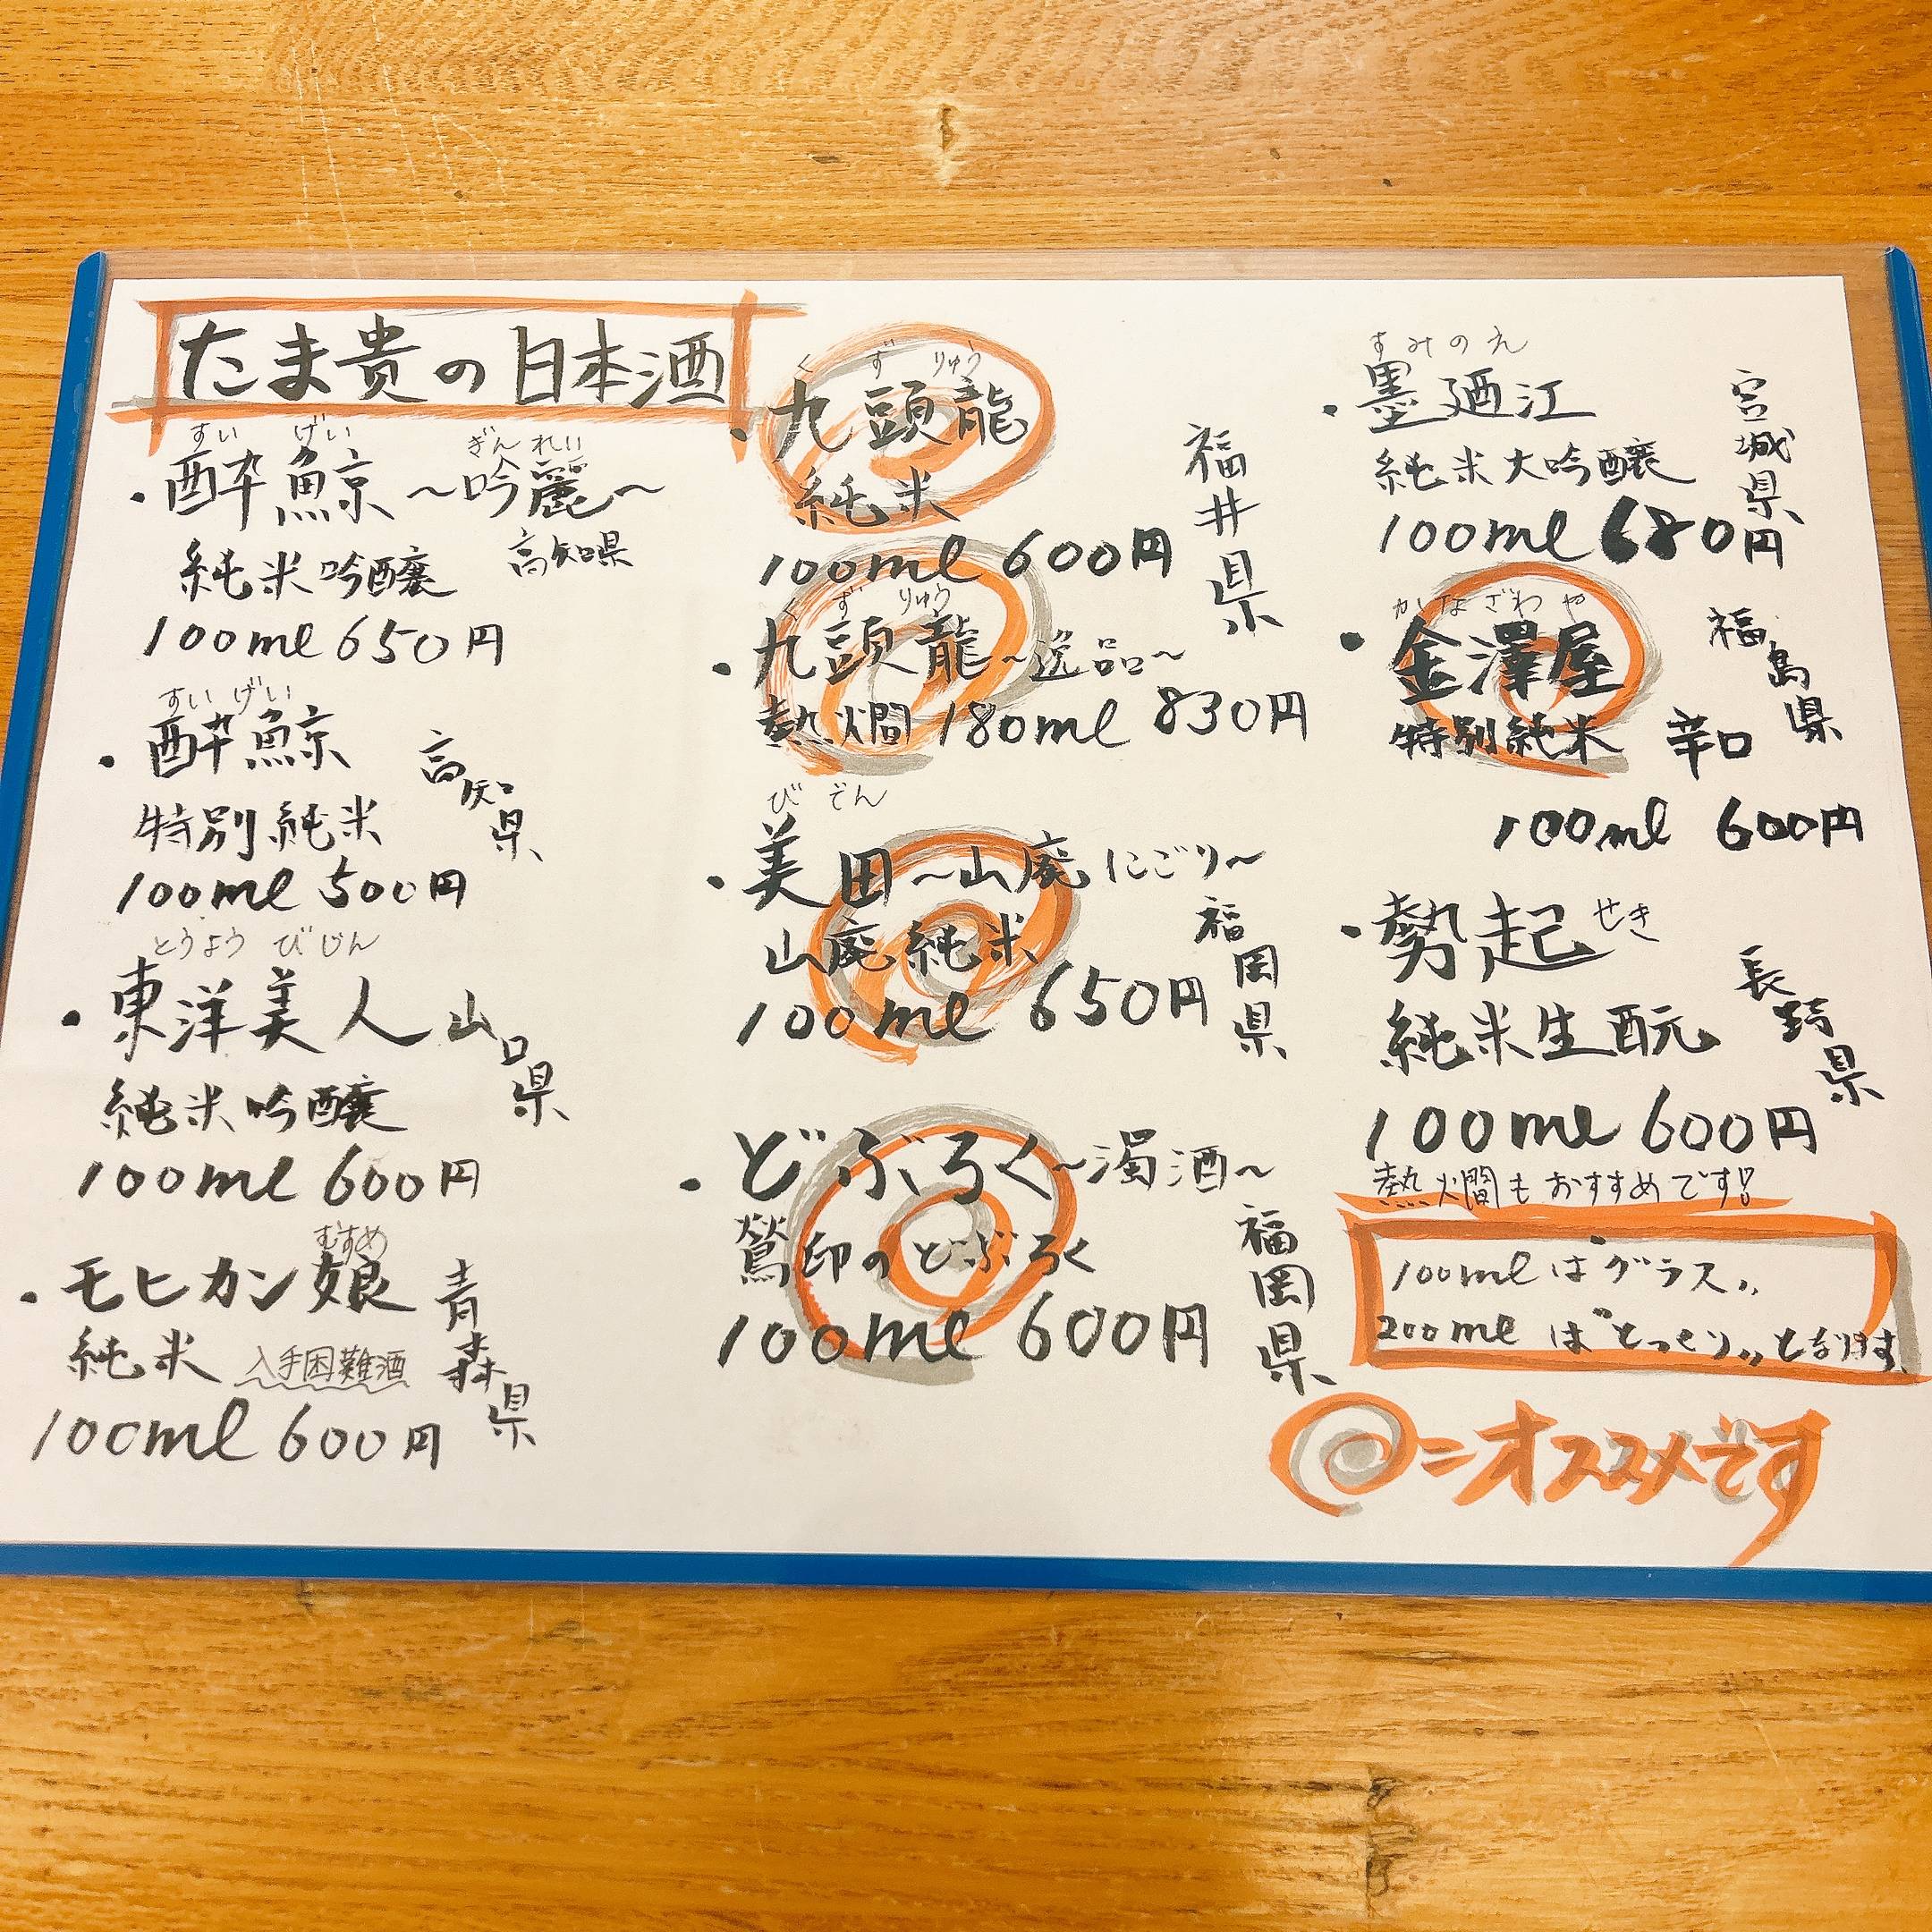 たま貴の日本酒
すい げい ぎん れい
・酔鯨 ～吟麗～
純米吟醸 高知県
100ml 650円
すい げい
・酔鯨 高知県
特別純米
100ml 500円
とうよう びじん
・東洋美人 山口県
純米吟醸
100ml 600円
むすめ
・モヒカン娘 青森県
純米 入手困難酒
100ml 600円
く ず りゅう
・九頭龍 福井県
純米
100ml 600円
く ず りゅう
・九頭龍～逸品～
熱燗 180ml 830円
び でん
・美田～山廃にごり～
山廃純米 福岡県
100ml 650円
・どぶろく～濁酒～
鶯印のどぶろく 福岡県
100ml 600円
すみのえ
・墨廼江 宮城県
純米大吟醸
100ml 680円
かなざわや
・金澤屋 福島県
特別純米 辛口
100ml 600円
・勢起 せき 長野県
純米生酛
100ml 600円
熱燗もおすすめです!!
100mlは"グラス"
200mlは"とっくり"となります。
＝オススメです